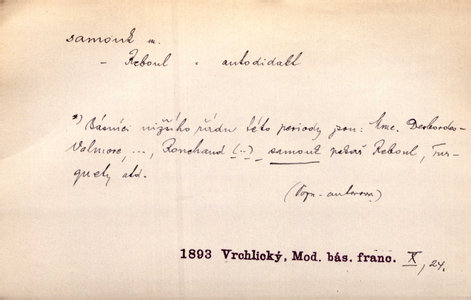 samouk m.
- Reboul * autodidakt
*) Básníci nižšího řádu této periody jsou: Mme. Desbordes-
Valmore, ..., Ronchaud (..), samouk pekař Reboul, Tur-
quety atd.
(Pozn. autorova)
1893 Vrchlický, Mod. bás. franc. X, 24.